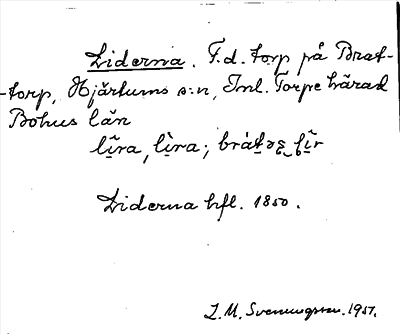 Liderna. F.d. torp på Brat-
-torp, Hjärtums s:n, Inl. Torpe härad
Bohus län
lĩra, lìra; bràtəs lĩr
Liderna hfl. 1850.
L.M. Svenungsson. 1951.